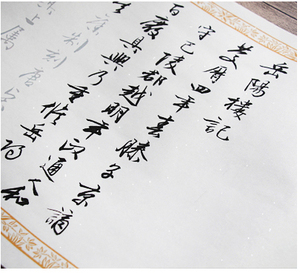 岳陽樓記
慶曆四年春滕子京謫
守巴陵郡越明年政通人和
百廢具興乃重修岳陽
制刻唐